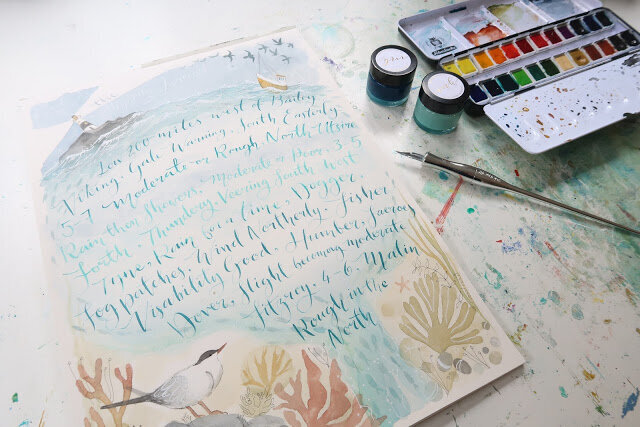 Low 200 miles west of Bailey
Viking, Gale Warning, South Easterly
5-7 Moderate or Rough North Utsire
Rain then Showers, Moderate or Poor, 3-5
Forth, Thundery, Veering South West
Tyne, Rain for a time, Dogger,
Fog patches, Wind Northerly Fisher,
Visability Good, Humber, Faeroes
Dover, Slight becoming moderate
Fitzroy, 4-6, Malin
Rough in the
North